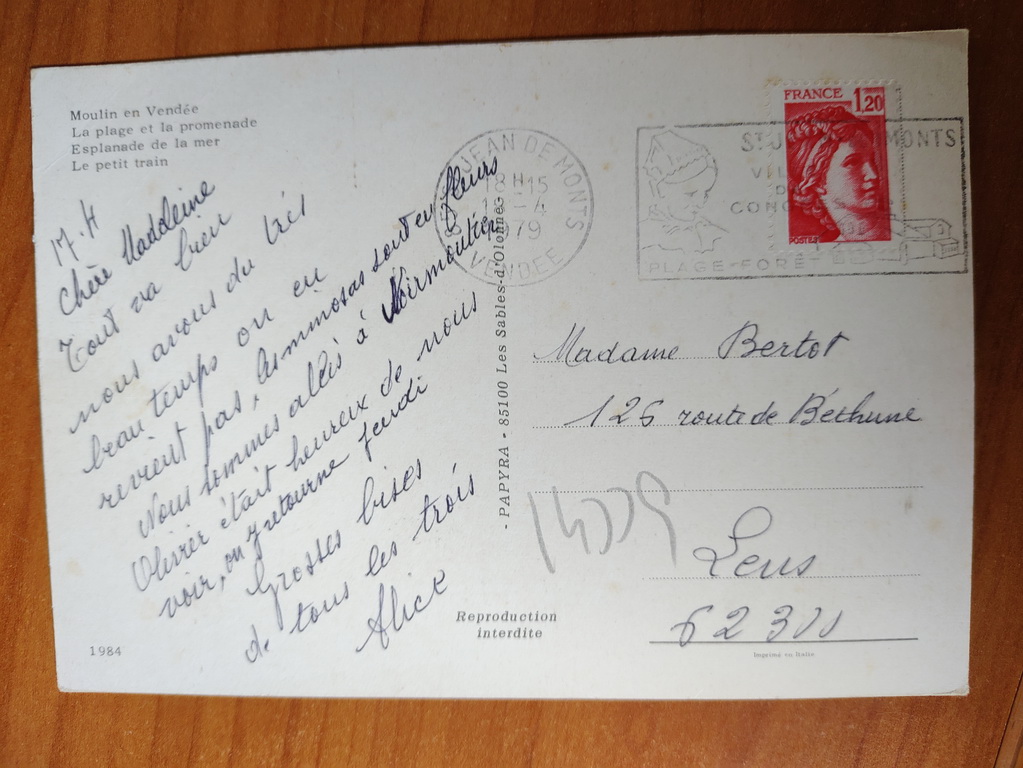 Moulin en Vendée
La plage et la promenade
Esplanade de la mer
Le petit train
17.4
Chère Madeleine
Tout va bien
nous avons du très
beau temps on en
revient pas, les mimosas sont en fleurs
Nous sommes allés à Noirmoutier
Olivier était heureux de nous
voir, on y retourne jeudi
Grosses bises
de tous les trois
Alice
1984
Reproduction
interdite
- PAPYRA - 85100 Les Sables-d'Olonne -
JEAN DE MONTS
18 H 15
1979
VENDEE
FRANCE 1,20
POSTES
MONTS
PLAGE-FORET
Madame Bertot
126 route de Béthune
Lens
62300
Imprimé en Italie